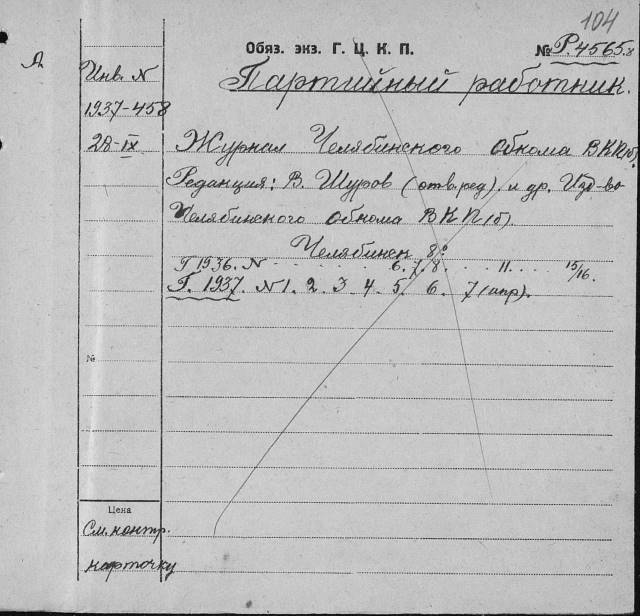 104
А
Обяз. экз. Г. Ц. К. П.
№ Р.4565.8
Инв. N
1937-458
28-IX
Партийный работник.
Журнал Челябинского обкома ВКП(б).
Редакция: В. Шуров (отв.ред). и др. Изд-во
Челябинского обкома ВКП(б).
Челябинск 8°.
Г 1936. N 6. 7. 8. 11. 15/16.
Г. 1937. N 1. 2. 3. 4. 5. 6. 7 (апр).
№
Цена
См. контр.
карточку